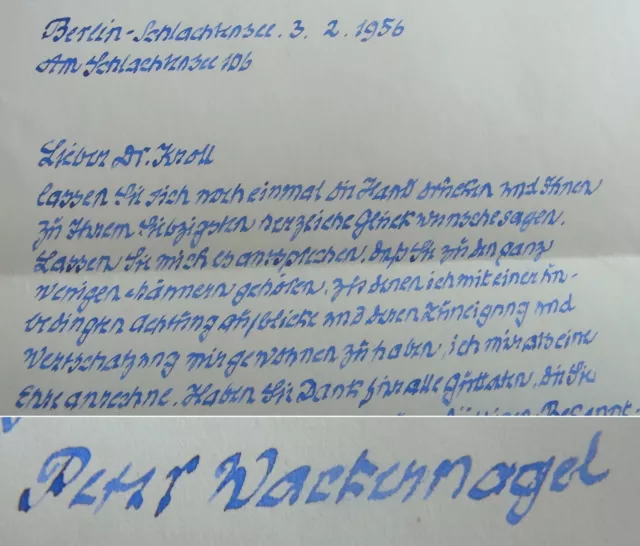 Berlin-Schlachtensee. 3. 2. 1956
Am Schlachtensee 106
Lieber Dr. Kroll
lassen Sie sich noch einmal die Hand drücken und Ihnen
zu Ihrem Siebzigsten herzliche Glückwünsche sagen.
Lassen Sie mich es aussprechen, daß Sie zu den ganz
wenigen Männern gehören, zu denen ich mit einer un-
bedingten Achtung aufblicke und deren Zuneigung und
Wertschätzung mir gewonnen zu haben, ich mir als eine
Ehre anrechne. Haben Sie Dank für alle Guttaten, die Sie
Peter Wackernagel